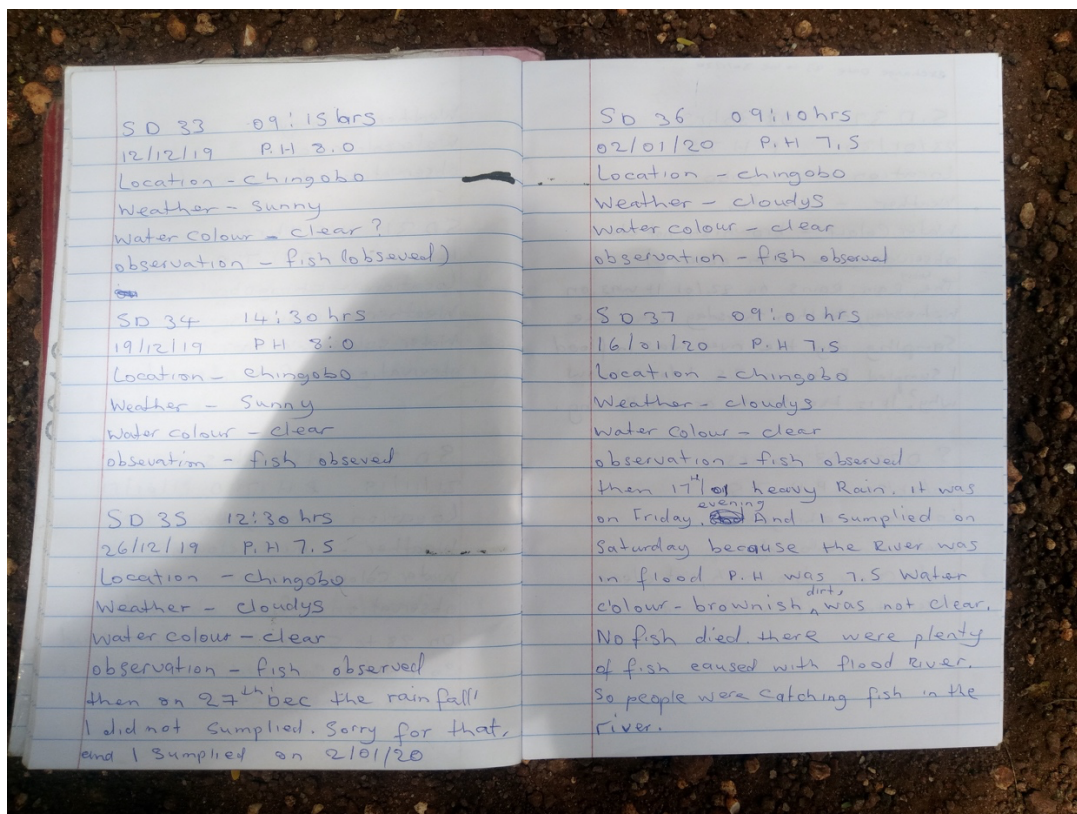 SD 33 09:15 hrs
12/12/19 P.H 8.0
Location - chingobo
Weather - Sunny
Water colour - clear?
observation - fish (obseved)
SD 34 14:30 hrs
19/12/19 PH 8:0
Location - chingobo
Weather - Sunny
Water colour - clear
obsevation - fish obseved
SD 35 12:30 hrs
26/12/19 P.H 7.5
Location - chingobo
Weather - cloudys
Water colour - clear
observation - fish observed
then on 27th Dec the rain fall
I did not sumplied. Sorry for that,
and I sumplied on 2/01/20
SD 36 09:10 hrs
02/01/20 P.H 7.5
Location - chingobo
Weather - cloudys
Water colour - clear
observation - fish observed
SD 37 09:00 hrs
16/01/20 P.H 7.5
Location - chingobo
Weather - cloudys
Water Colour - clear
observation - fish observed
then 17th/01 heavy Rain. it was
on Friday evening. And I sumplied on
Saturday because the River was
in flood P.H was 7.5 Water
colour - brownish dirty was not clear.
No fish died. there were plenty
of fish caused with flood River.
So people were catching fish in the
river.